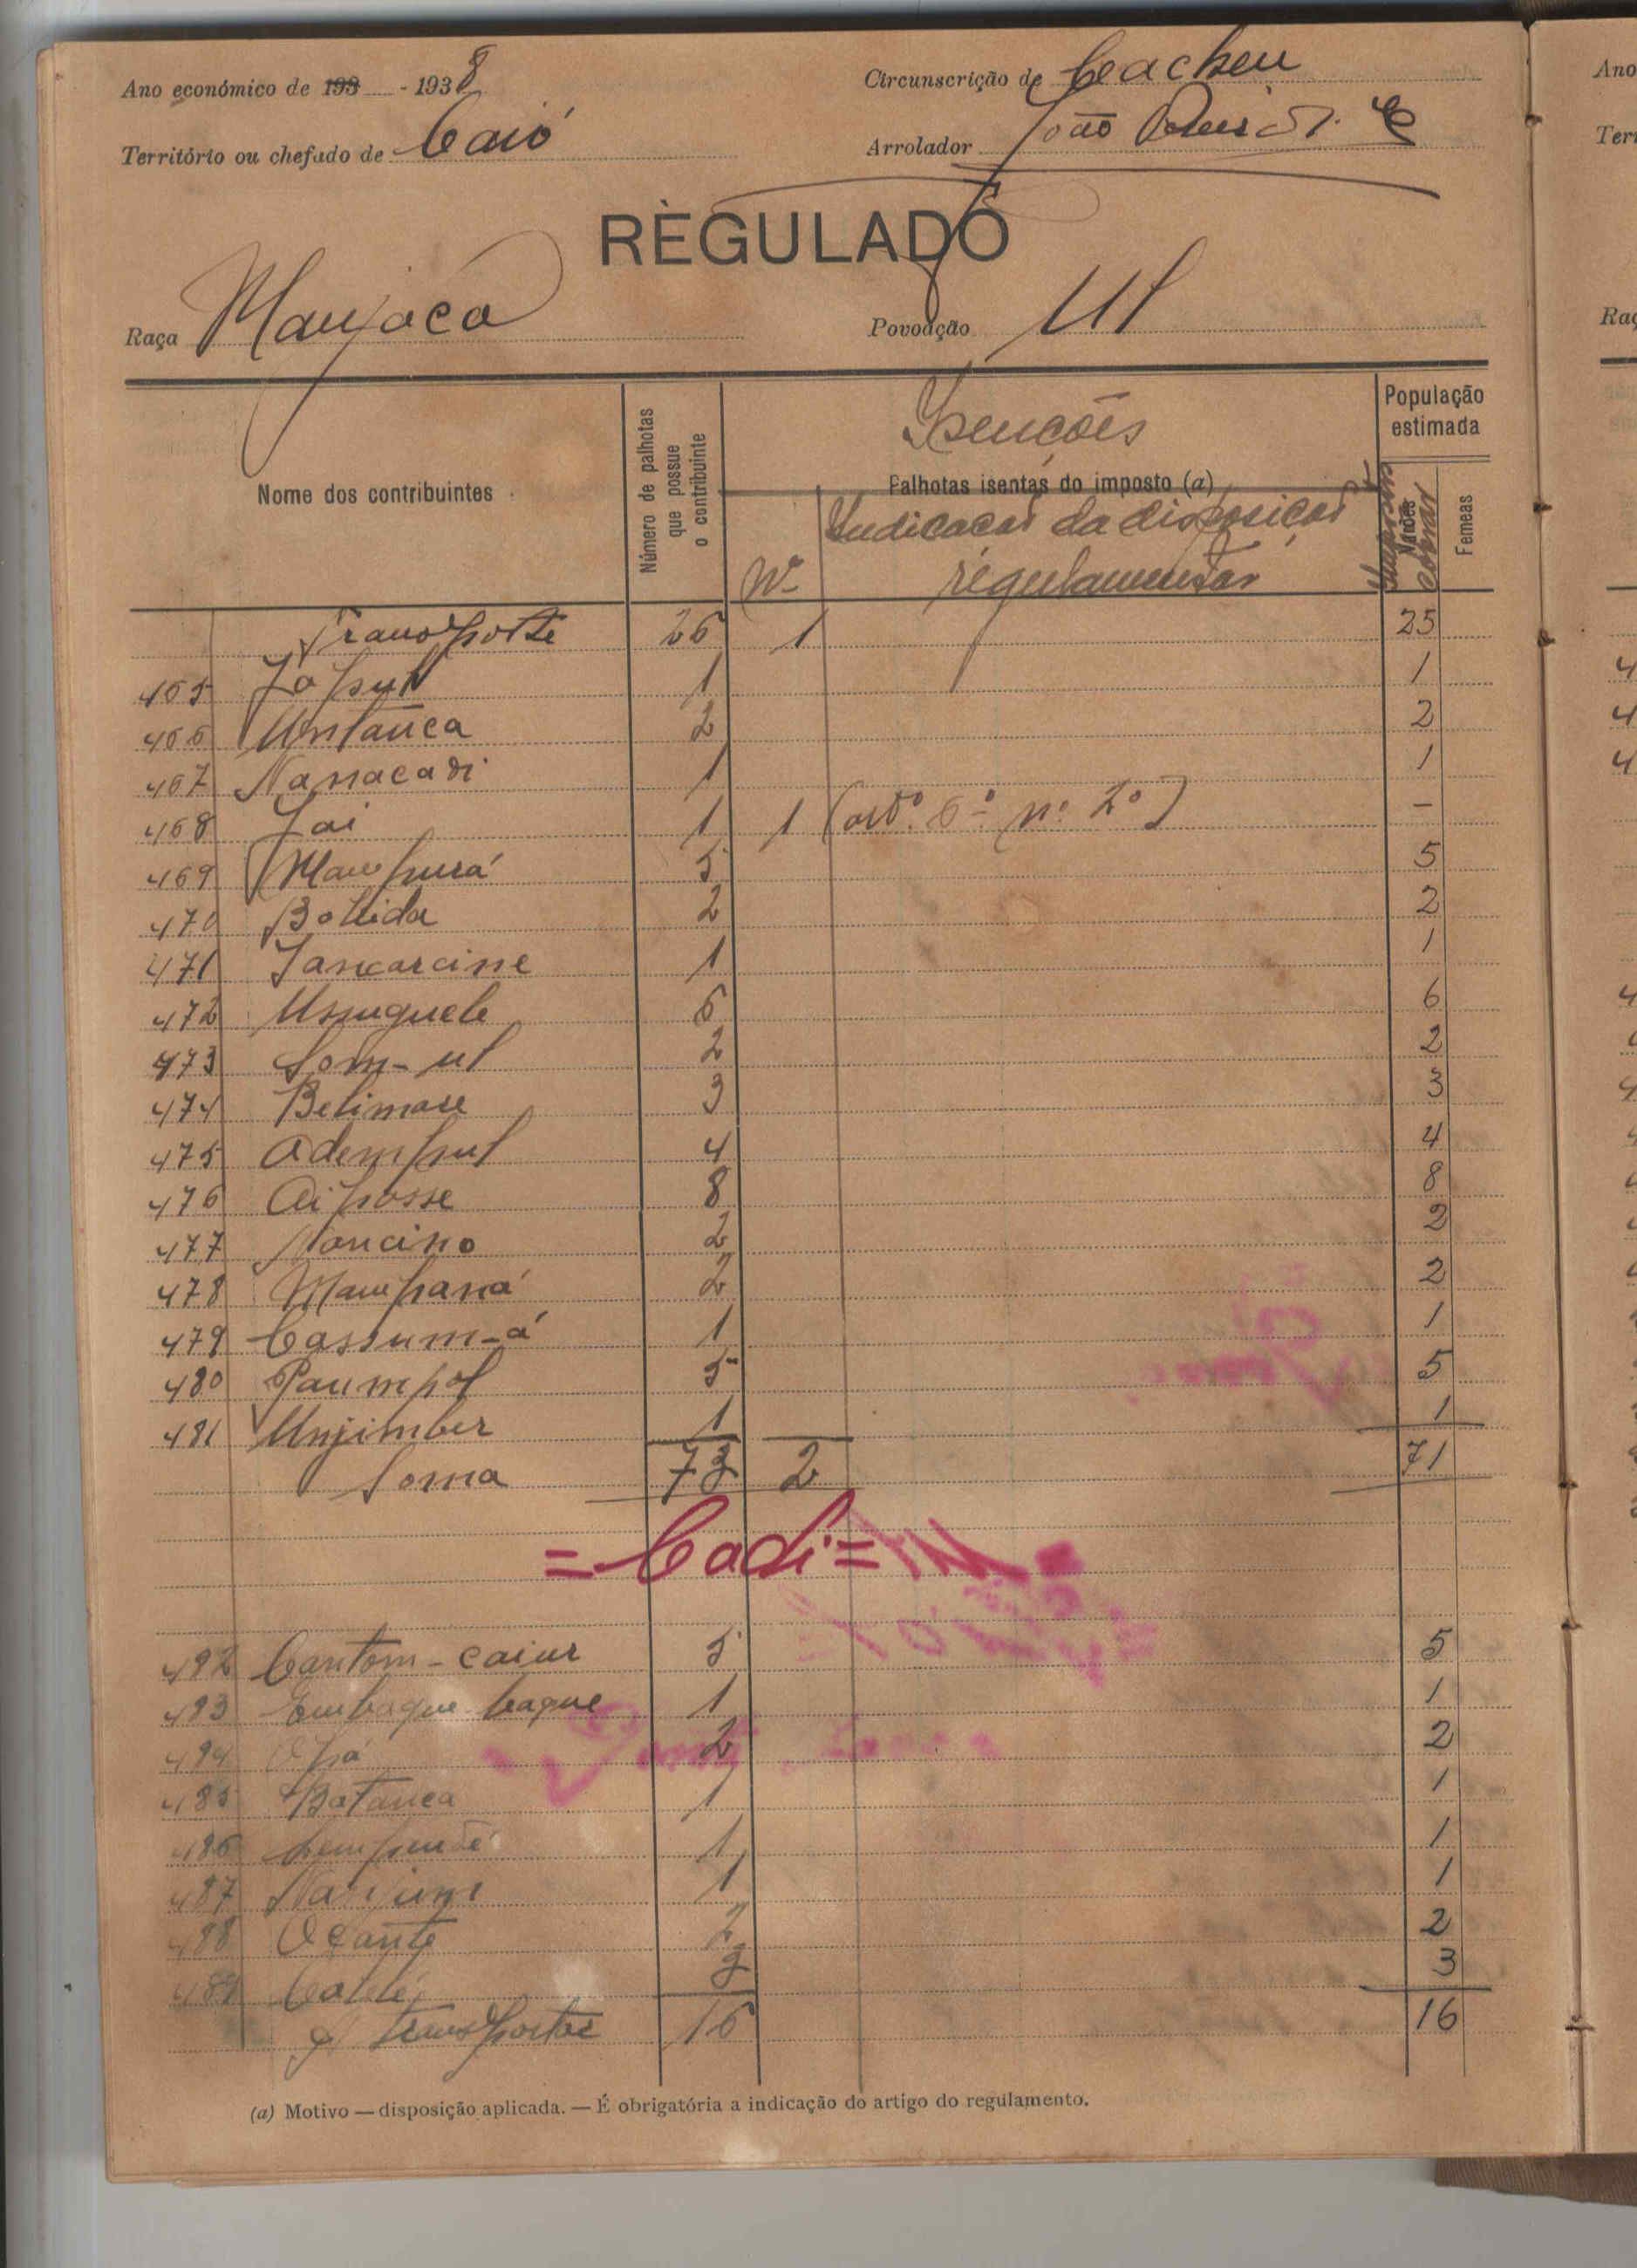 Ano económico de 193 - 1938
Circunscrição de Cacheu
Território ou chefado de Caió
Arrolador João
REGULADO
Raça Manjaca
Povoação Ul
Nome dos contribuintes
Número de palhotas que possue o contribuinte
Isenções
Palhotas isentas do imposto (a)
Nº
Indicacao da disposiçao regulamentar
População estimada
Impostos a cobrar
Machos
Femeas
Transporte 26 1 25
465 Jopul 1 1
466 Untanca 2 2
467 Nanacadi 1 1
468 Jai 1 1 (artº. 6º nº 2º) –
469 Mampurá 5 5
470 Batida 2 2
471 Jancarcine 1 1
472 6 6
473 Som-ul 2 2
474 Belimase 3 3
475 Adempul 4 4
476 Aiposse 8 8
477 Noncino 2 2
478 Mampaná 2 2
479 Cassum-á 1 1
480 Paumpol 5 5
481 Unjimber 1 1
Soma 73 2 71
= Cadi =
492 Cantom-caiur 5 5
483 Embaque-baque 1 1
484 Opá 2 2
485 Batanca 1 1
486 1 1
487 1 1
488 Ocante 2 2
489 3 3
A transportar 16 16
(a) Motivo — disposição aplicada. — É obrigatória a indicação do artigo do regulamento.